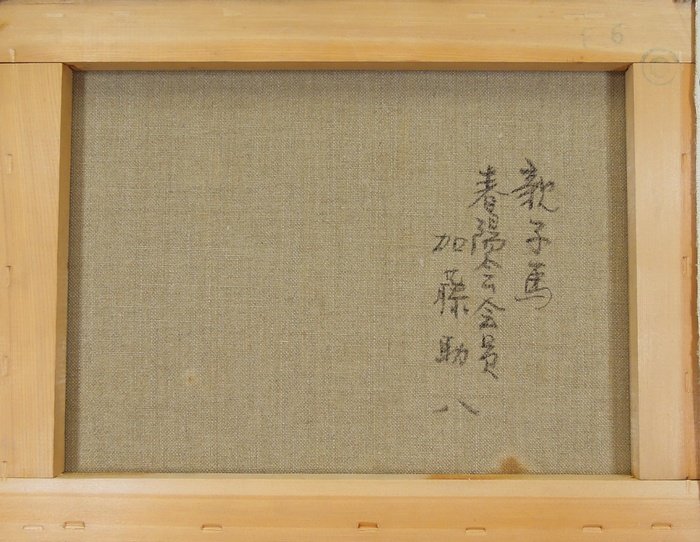 親子馬
春陽会会員
加藤助八
F6